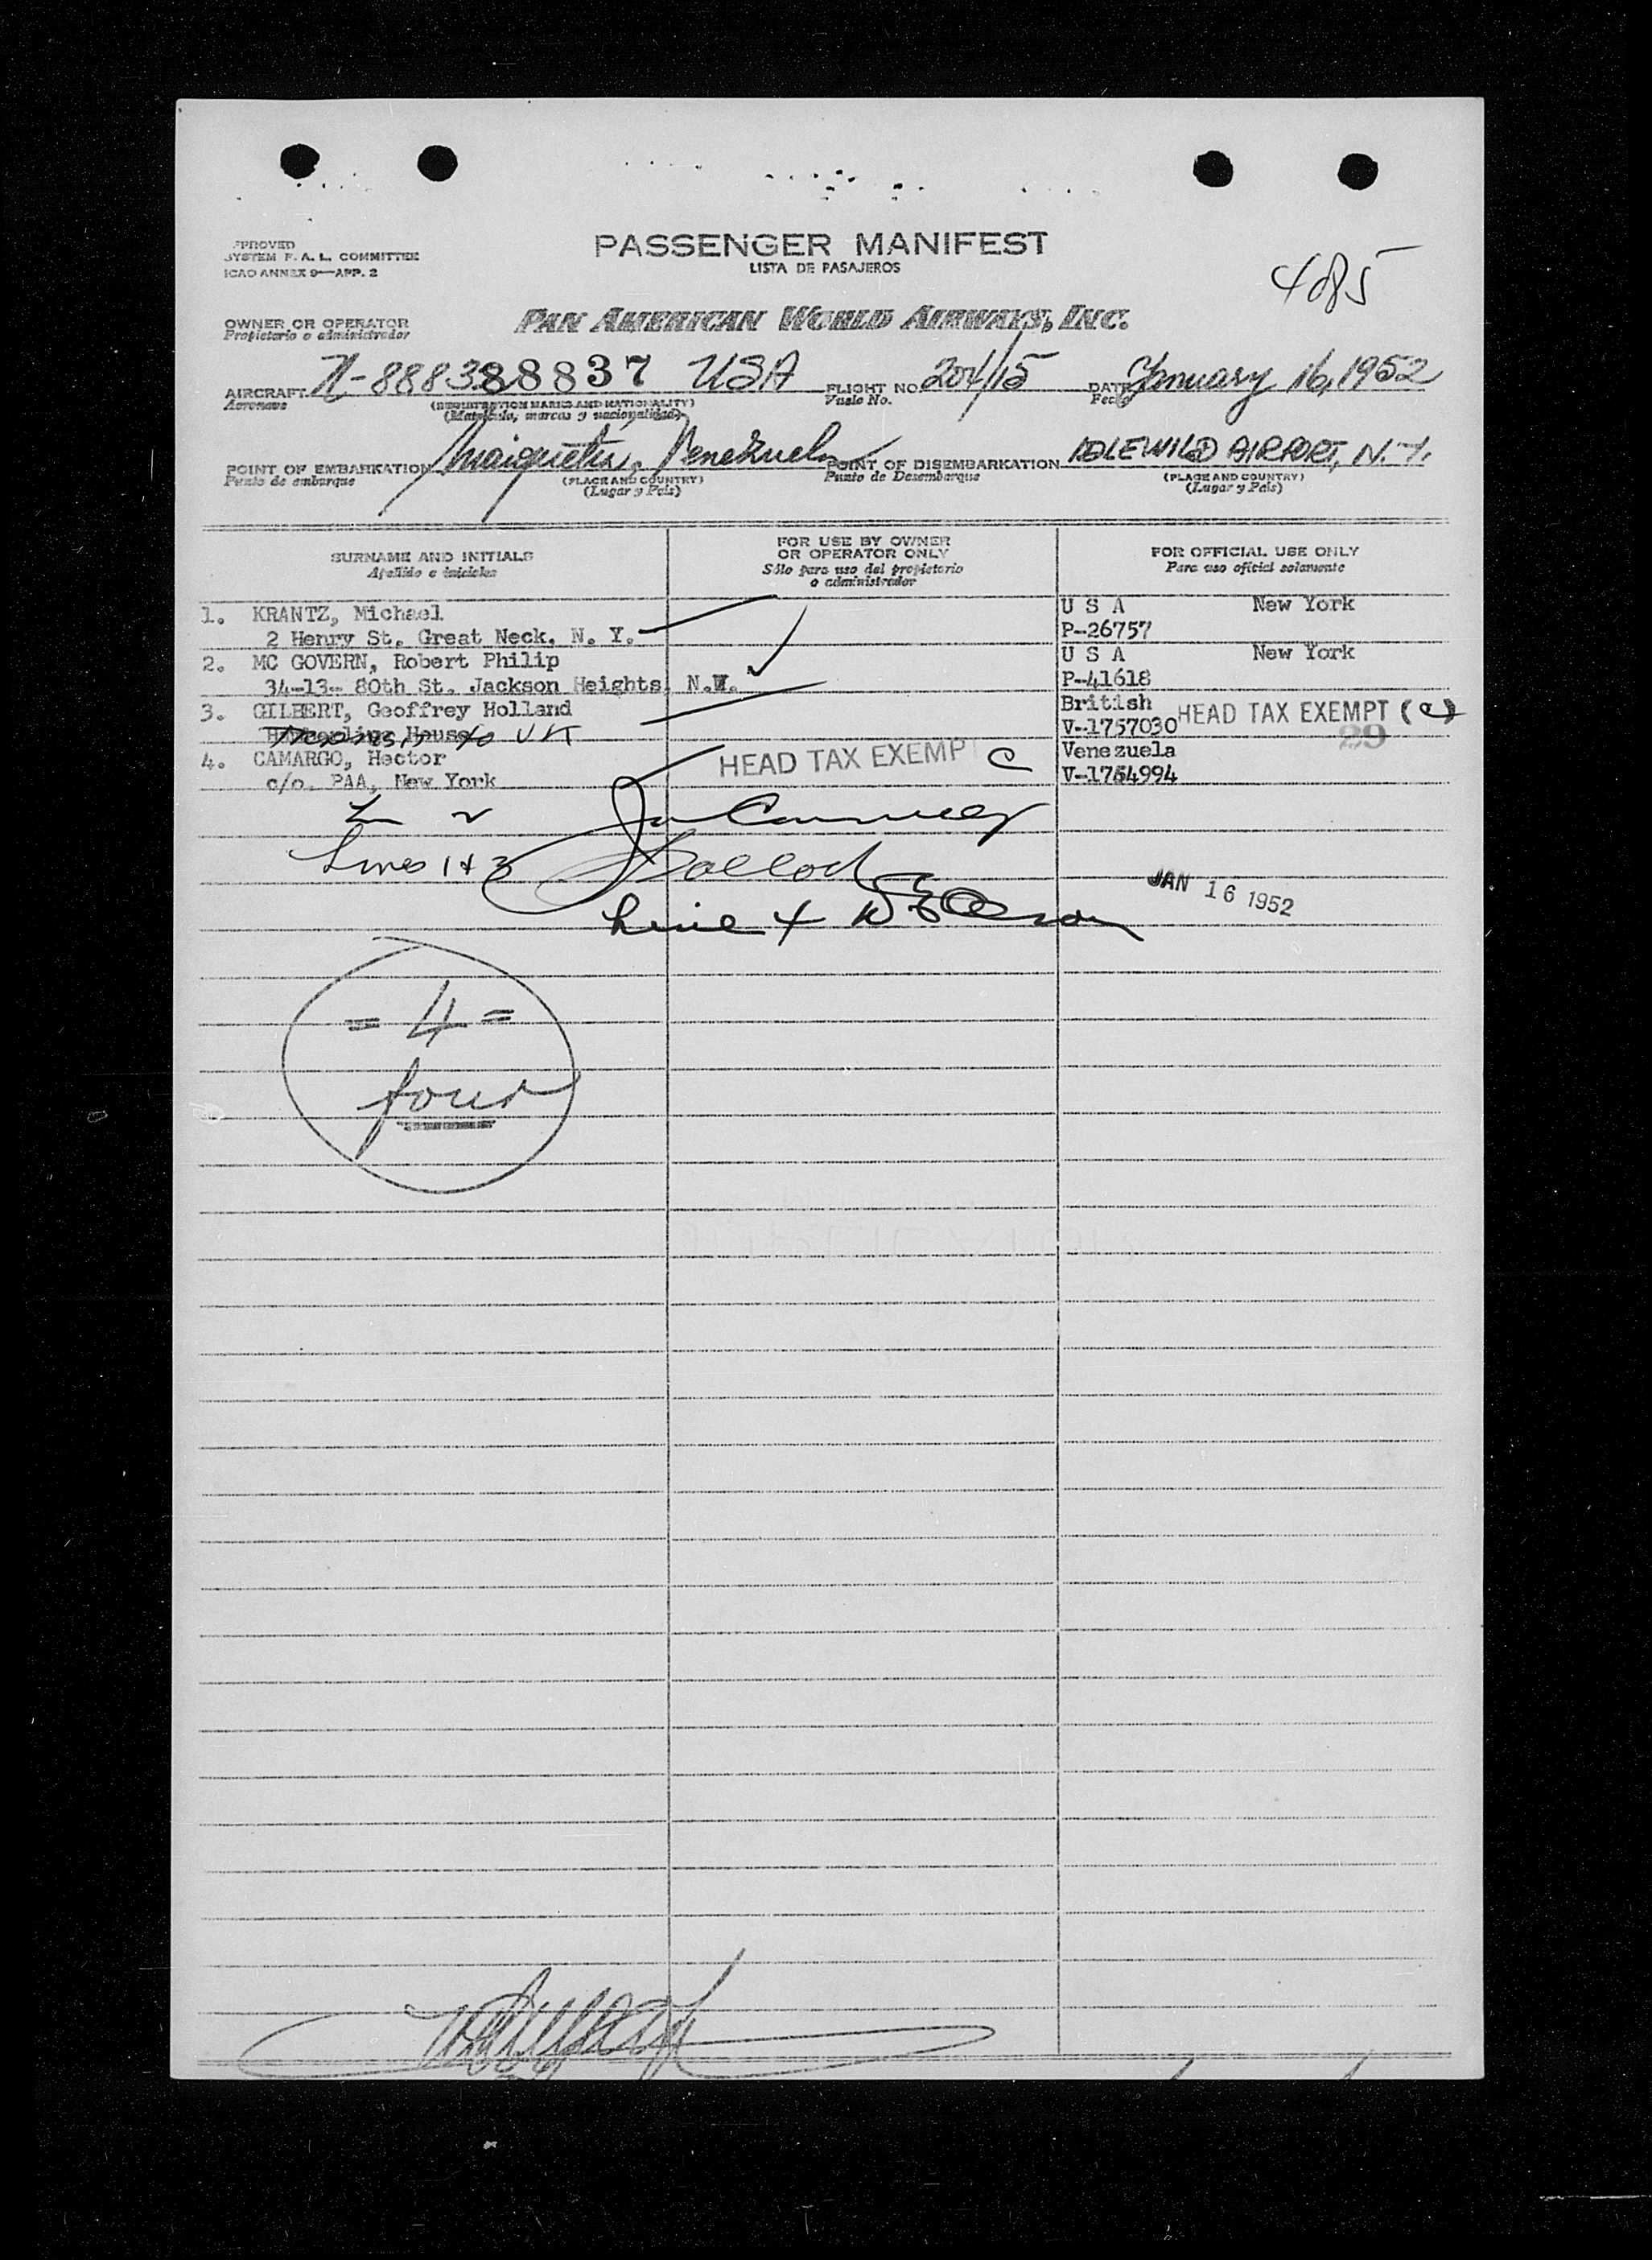 PASSENGER MANIFEST
LISTA DE PASAJEROS
PPROVED
SYSTEM F. A. L. COMMITTEE
ICAO ANNEX 9—APP. 2
4085
OWNER OR OPERATOR
Propietario o administrador
PAN AMERICAN WORLD AIRWAYS, INC.
AIRCRAFT N-8883 88837 USA FLIGHT NO. 204/15 DATE January 16, 1952
Aeronave Vuelo No. Fecha
(REGISTRATION MARKS AND NATIONALITY)
(Matrícula, marcas y nacionalidad)
POINT OF EMBARKATION Maiquetia, Venezuela POINT OF DISEMBARKATION IDLEWILD AIRPORT, N.Y.
Punto de embarque (PLACE AND COUNTRY) Punto de Desembarque (PLACE AND COUNTRY)
(Lugar y País) (Lugar y País)
SURNAME AND INITIALS
Apellido e iniciales
FOR USE BY OWNER
OR OPERATOR ONLY
Sólo para uso del propietario
o administrador
FOR OFFICIAL USE ONLY
Para uso oficial solamente
1. KRANTZ, Michael U S A New York
2 Henry St. Great Neck, N. Y. P-26757
2. MC GOVERN, Robert Philip U S A New York
34-13- 80th St. Jackson Heights, N.Y. P-41618
3. GILBERT, Geoffrey Holland British
House to UK V-1757030 HEAD TAX EXEMPT (c)
29
4. CAMARGO, Hector HEAD TAX EXEMP C Venezuela
c/o. PAA, New York V-1754994
Lines 1 & 3
Line 4
JAN 16 1952
= 4 =
four